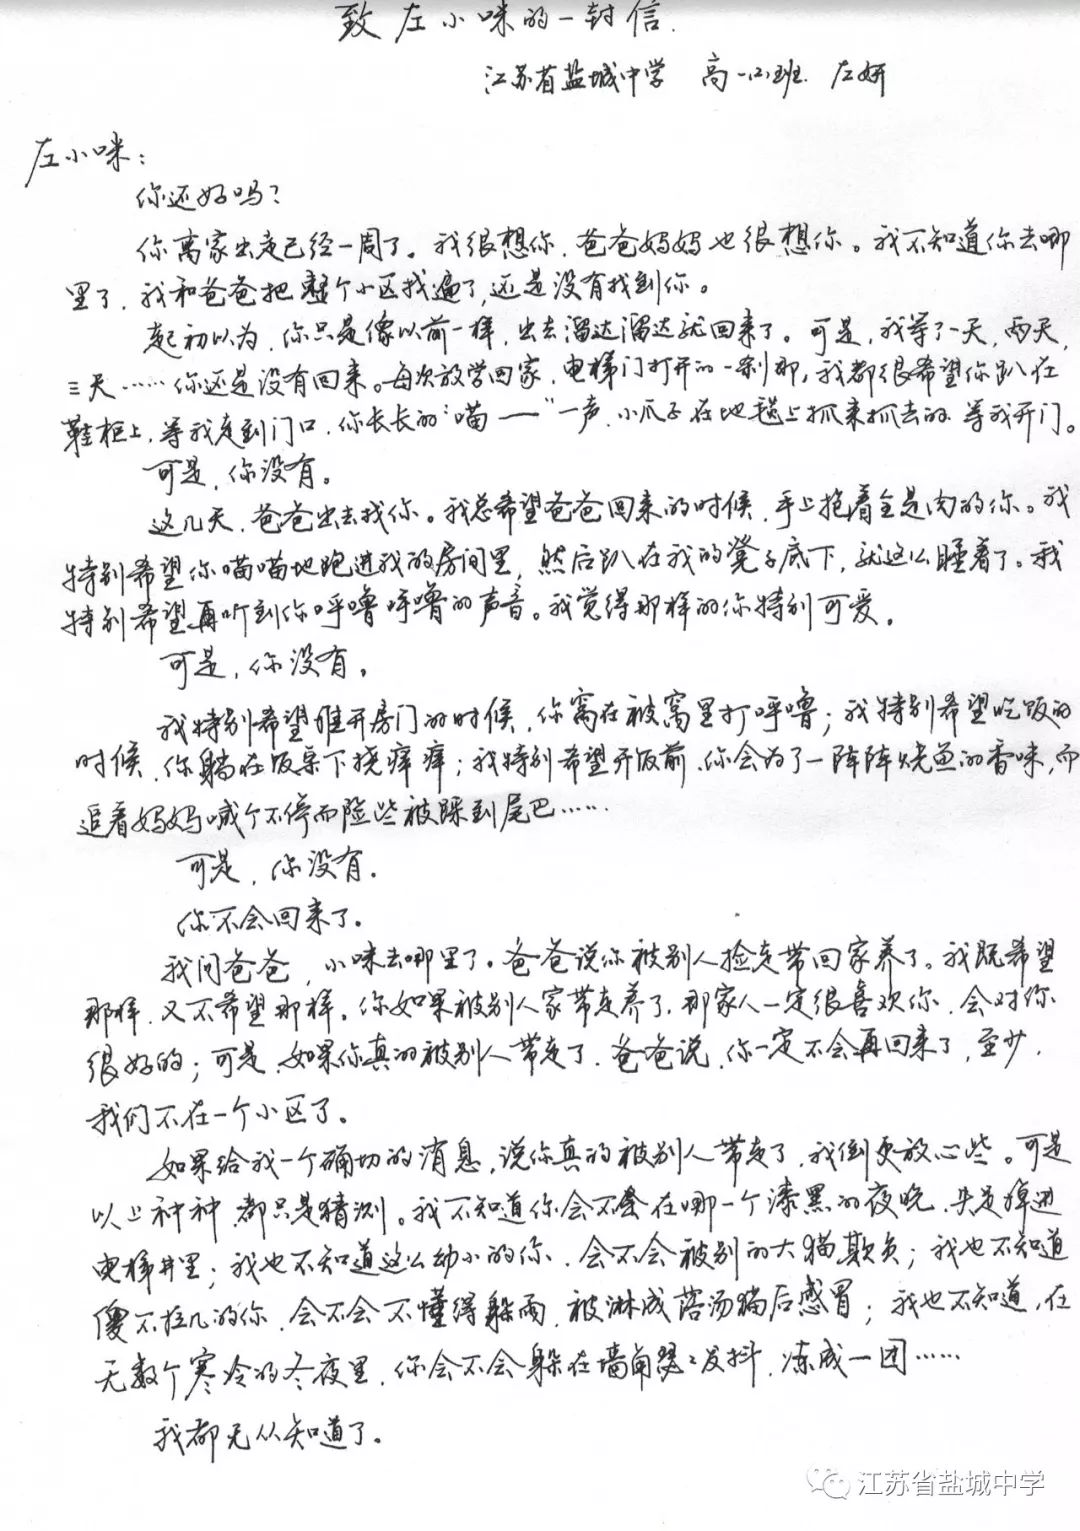 致左小咪的一封信.
江苏省盐城中学 高一(2)班 左妍
左小咪：
你还好吗？
你离家出走已经一周了。我很想你，爸爸妈妈也很想你。我不知道你去哪
里了，我和爸爸把整个小区找遍了，还是没有找到你。
起初以为，你只是像以前一样，出去溜达溜达就回来了。可是，我等了一天，两天，
三天……你还是没有回来。每次放学回家，电梯门打开的一刹那，我都很希望你趴在
鞋柜上，等我走到门口，你长长的“喵——”一声，小爪子在地毯上抓来抓去的，等我开门。
可是，你没有。
这几天，爸爸出去找你。我总希望爸爸回来的时候，手上抱着全是肉的你。我
特别希望你喵喵地跑进我的房间里，然后趴在我的凳子底下，就这么睡着了。我
特别希望再听到你呼噜呼噜的声音。我觉得那样的你特别可爱。
可是，你没有。
我特别希望推开房门的时候，你窝在被窝里打呼噜；我特别希望吃饭的
时候，你躺在饭桌下挠痒痒；我特别希望开饭前，你会为了一阵阵烧鱼的香味，而
追着妈妈喊个不停而险些被踩到尾巴……
可是，你没有.
你不会回来了.
我问爸爸，小咪去哪里了。爸爸说你被别人捡走带回家养了。我既希望
那样，又不希望那样。你如果被别人家带走养了，那家人一定很喜欢你，会对你
很好的；可是，如果你真的被别人带走了，爸爸说，你一定不会再回来了，至少，
我们不在一个小区了。
如果给我一个确切的消息，说你真的被别人带走了，我倒更放心些。可是
以上种种，都只是猜测。我不知道你会不会在哪一个漆黑的夜晚，失足掉进
电梯井里；我也不知道这么幼小的你，会不会被别的大猫欺负；我也不知道
傻不拉几的你，会不会不懂得躲雨，被淋成落汤猫后感冒；我也不知道，在
无数个寒冷的冬夜里，你会不会躲在墙角瑟瑟发抖，冻成一团……
我都无从知道了.
江苏省盐城中学